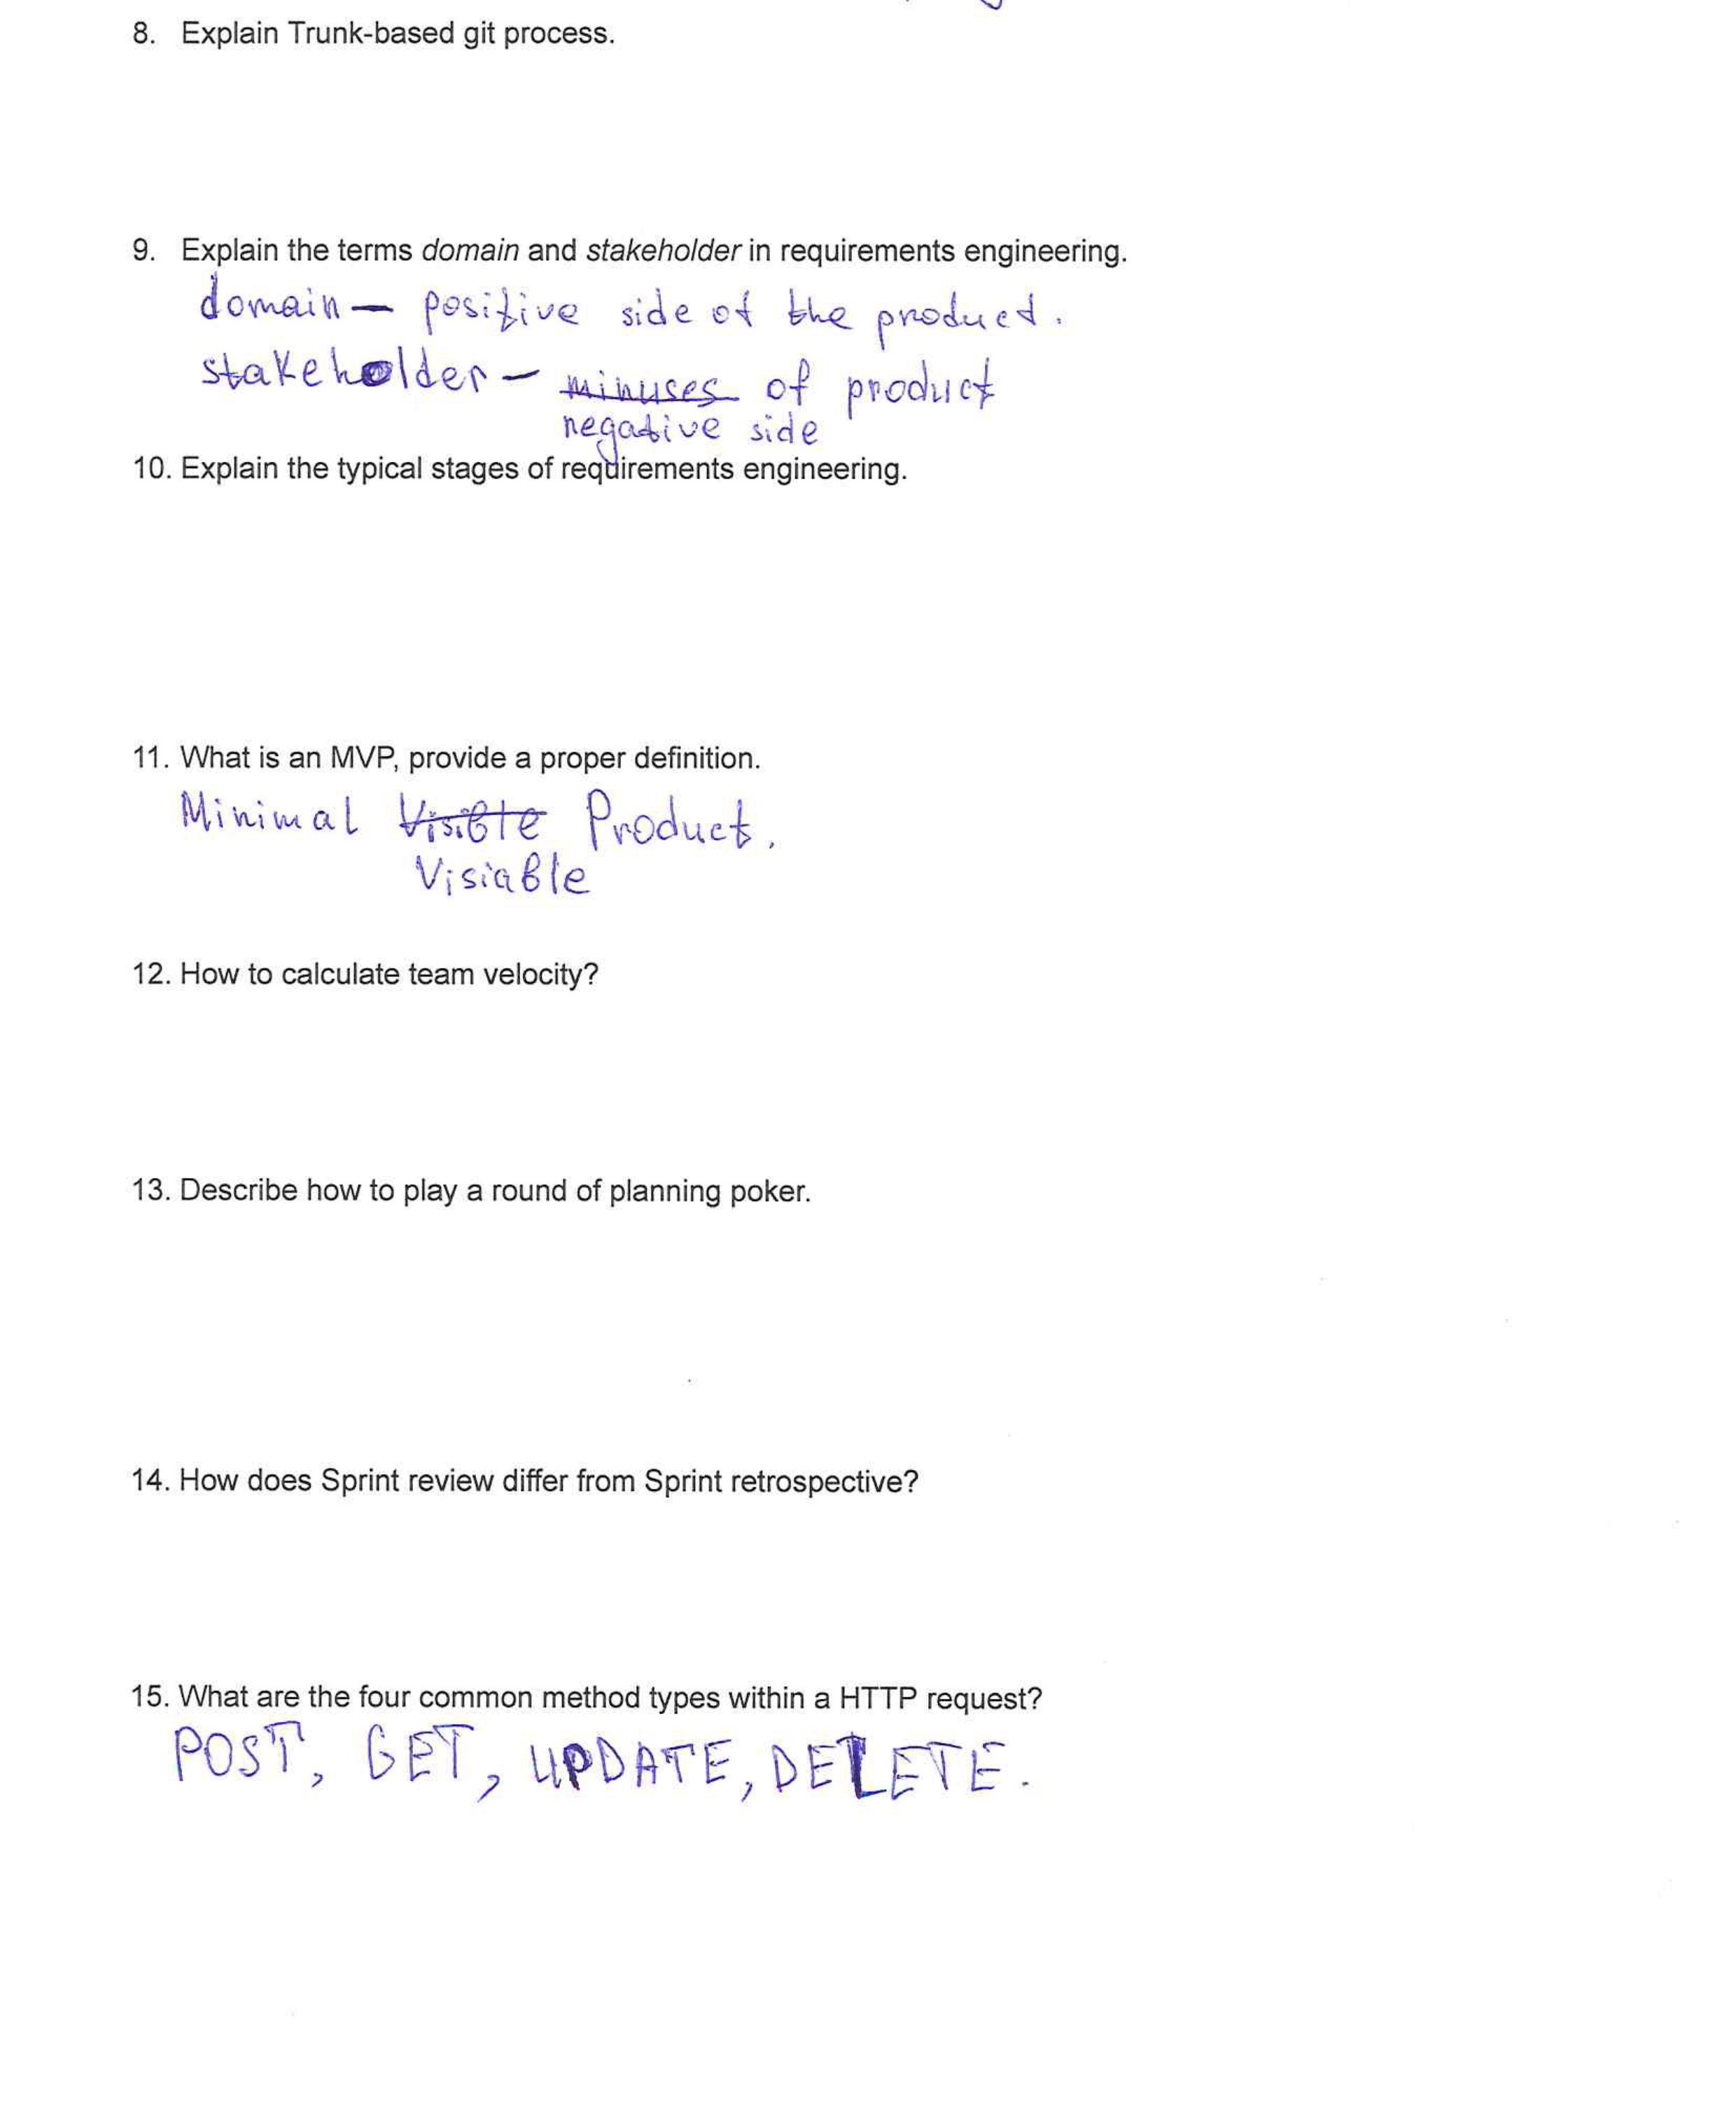 8. Explain Trunk-based git process.
9. Explain the terms domain and stakeholder in requirements engineering.
domain — positive side of the product.
stakeholder — minuses of product
negative side
10. Explain the typical stages of requirements engineering.
11. What is an MVP, provide a proper definition.
Minimal Visible Product.
Visiable
12. How to calculate team velocity?
13. Describe how to play a round of planning poker.
14. How does Sprint review differ from Sprint retrospective?
15. What are the four common method types within a HTTP request?
POST, GET, UPDATE, DELETE.